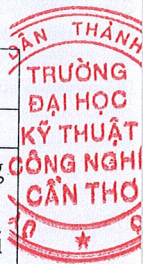 ÂN THÀNH
TRƯỜNG
ĐẠI HỌC
KỸ THUẬT
CÔNG NGHỆ
CẦN THƠ